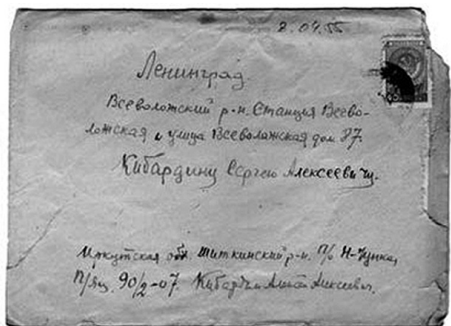 2.04.55
Ленинград
Всеволожский р-н. Станция Всево-
ложская улица Всеволожская дом 87.
Кибардину Сергею Алексеевичу.
Иркутская обл. Шиткинский р-н. П/о Н-
П/ящ. 90/2-07. Кибардин Алексеевич.